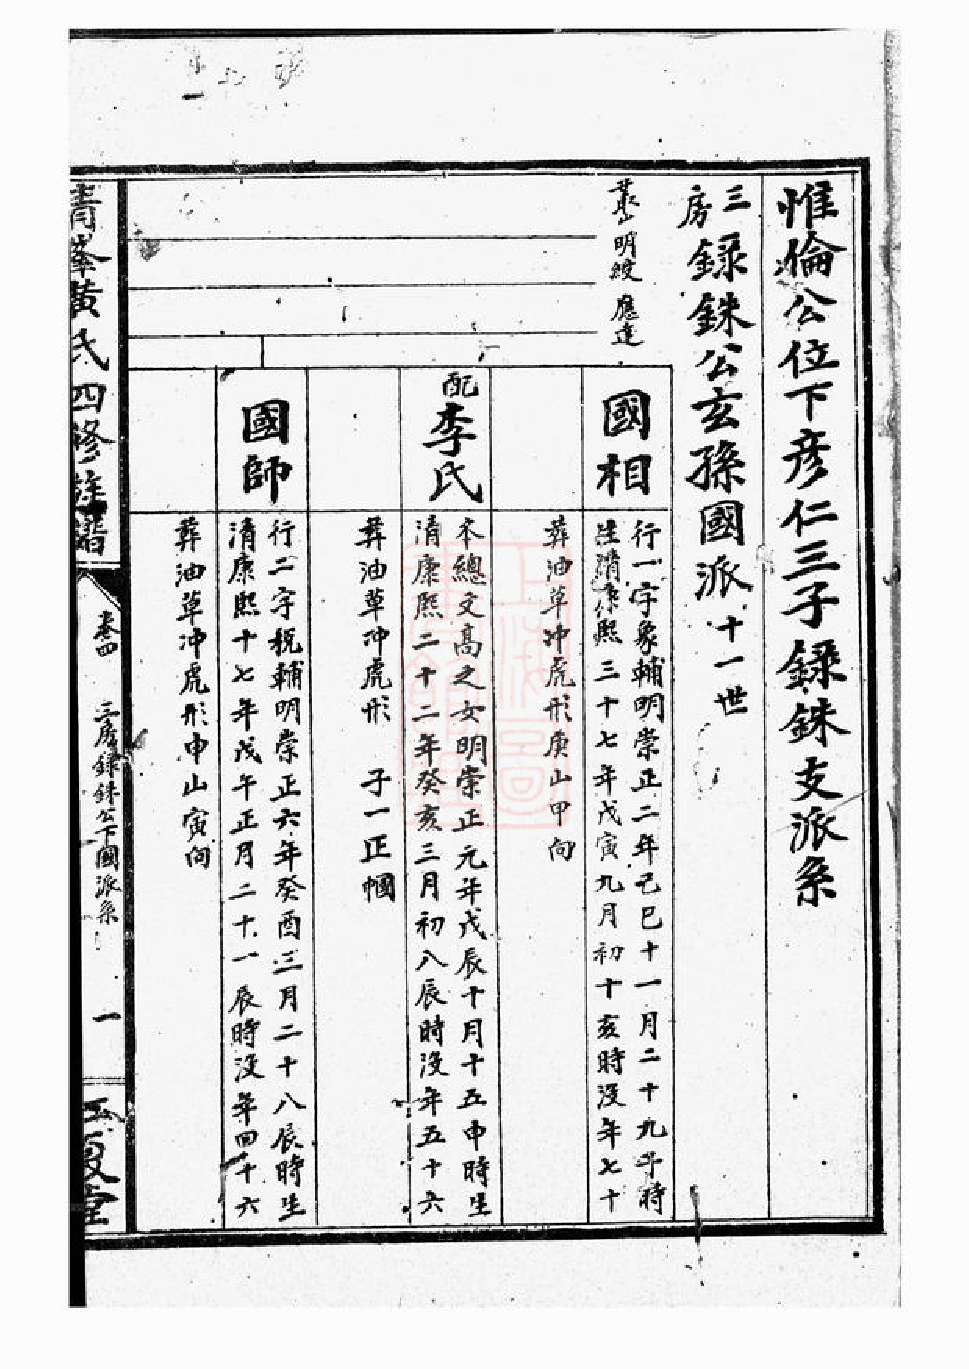 惟倫公位下彦仁三子録銖支派系
三房録銖公玄孫國派十一世
叢山明紋應達
國相
行一字象輔明崇正二年己巳十一月二十九午時
生清康熙三十七年戊寅九月初十亥時没年七十
葬油草冲虎形庚山甲向
配李氏
本總文高之女明崇正元年戊辰十月十五申時生
清康熙二十二年癸亥三月初八辰時没年五十六
葬油草冲虎形 子一正幗
國師
行二字税輔明崇正六年癸酉三月二十八辰時生
清康熙十七年戊午正月二十一辰時没年四十六
葬油草冲虎形申山寅向
青峯黄氏四修族譜
卷四
三房録銖公下國派系
一
江夏堂